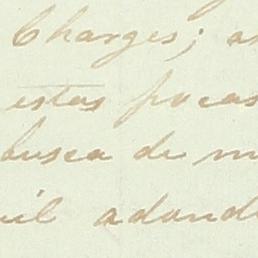 Charges; a
estas pocas
busca de m
uil adond